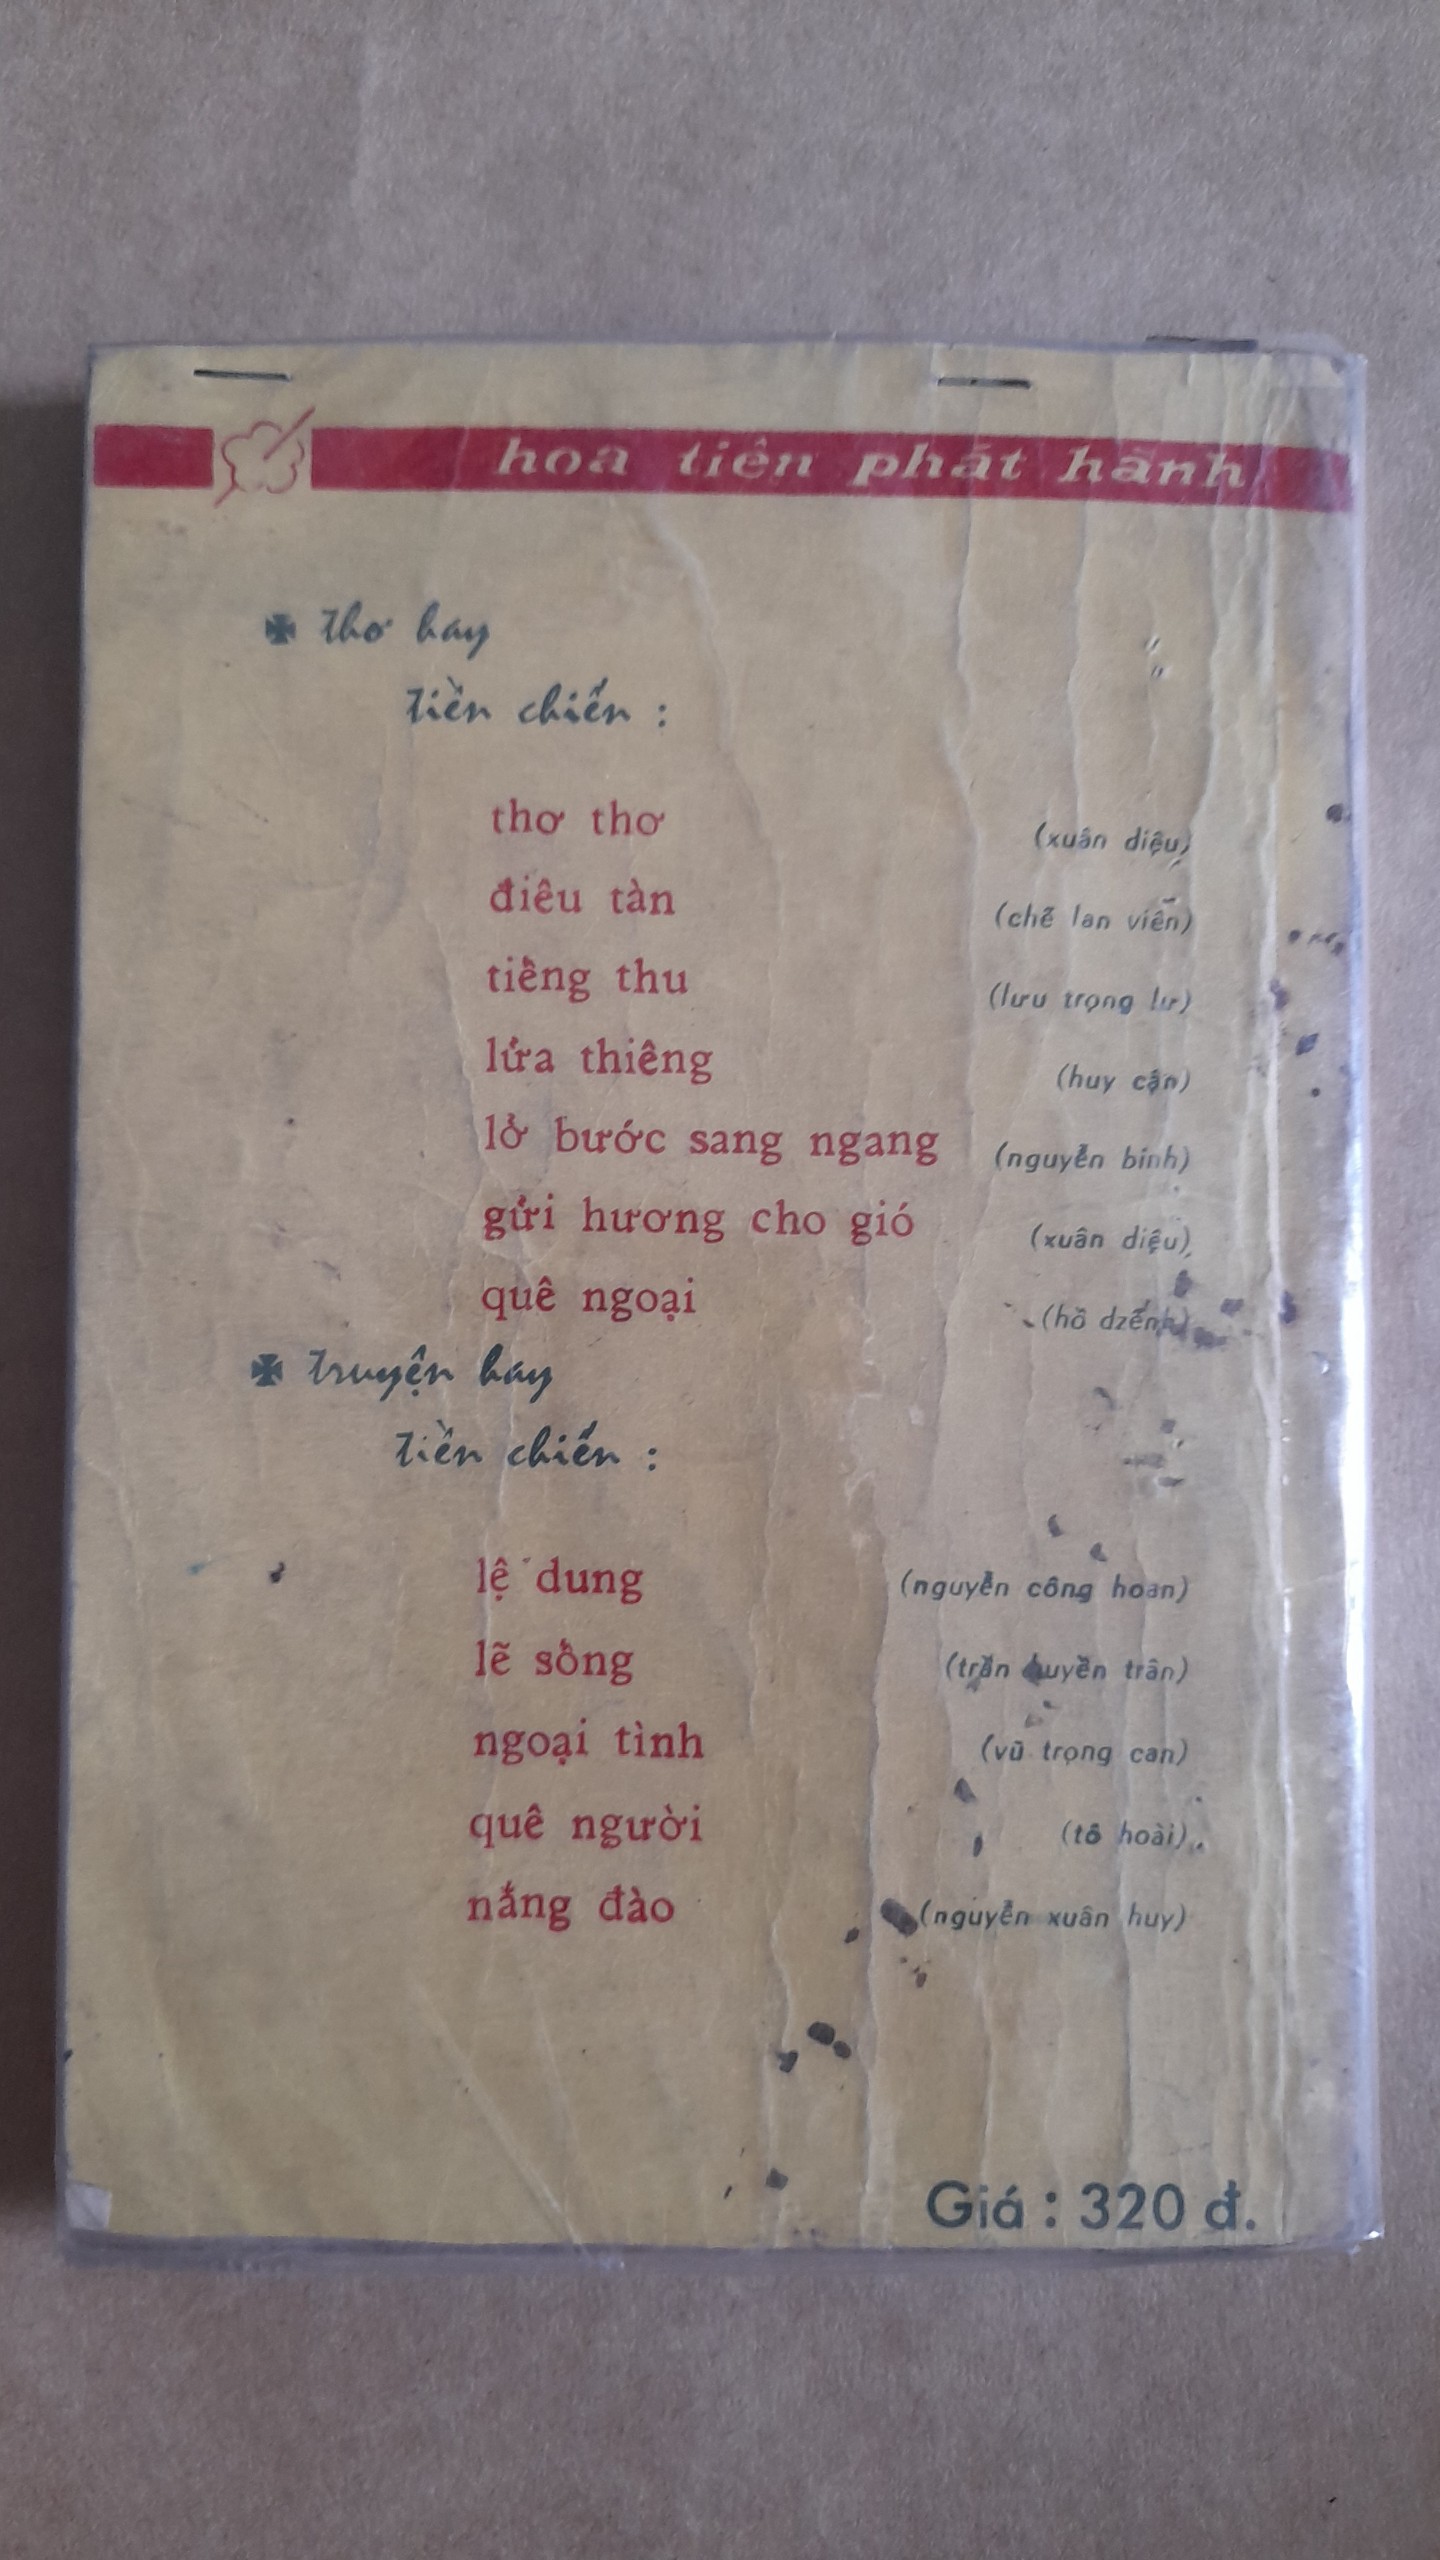 hoa tiên phát hành
thơ hay
tiền chiến :
thơ thơ (xuân diệu)
điêu tàn (chế lan viên)
tiếng thu (lưu trọng lư)
lửa thiêng (huy cận)
lở bước sang ngang (nguyễn bính)
gửi hương cho gió (xuân diệu)
quê ngoại (hồ dzếnh)
truyện hay
tiền chiến :
lệ dung (nguyễn công hoan)
lẽ sống (trần huyền trân)
ngoại tình (vũ trọng can)
quê người (tô hoài)
nắng đào (nguyễn xuân huy)
Giá : 320 đ.